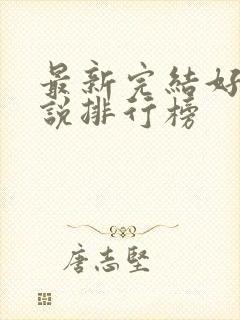 最新完結好
說排行榜
唐志堅